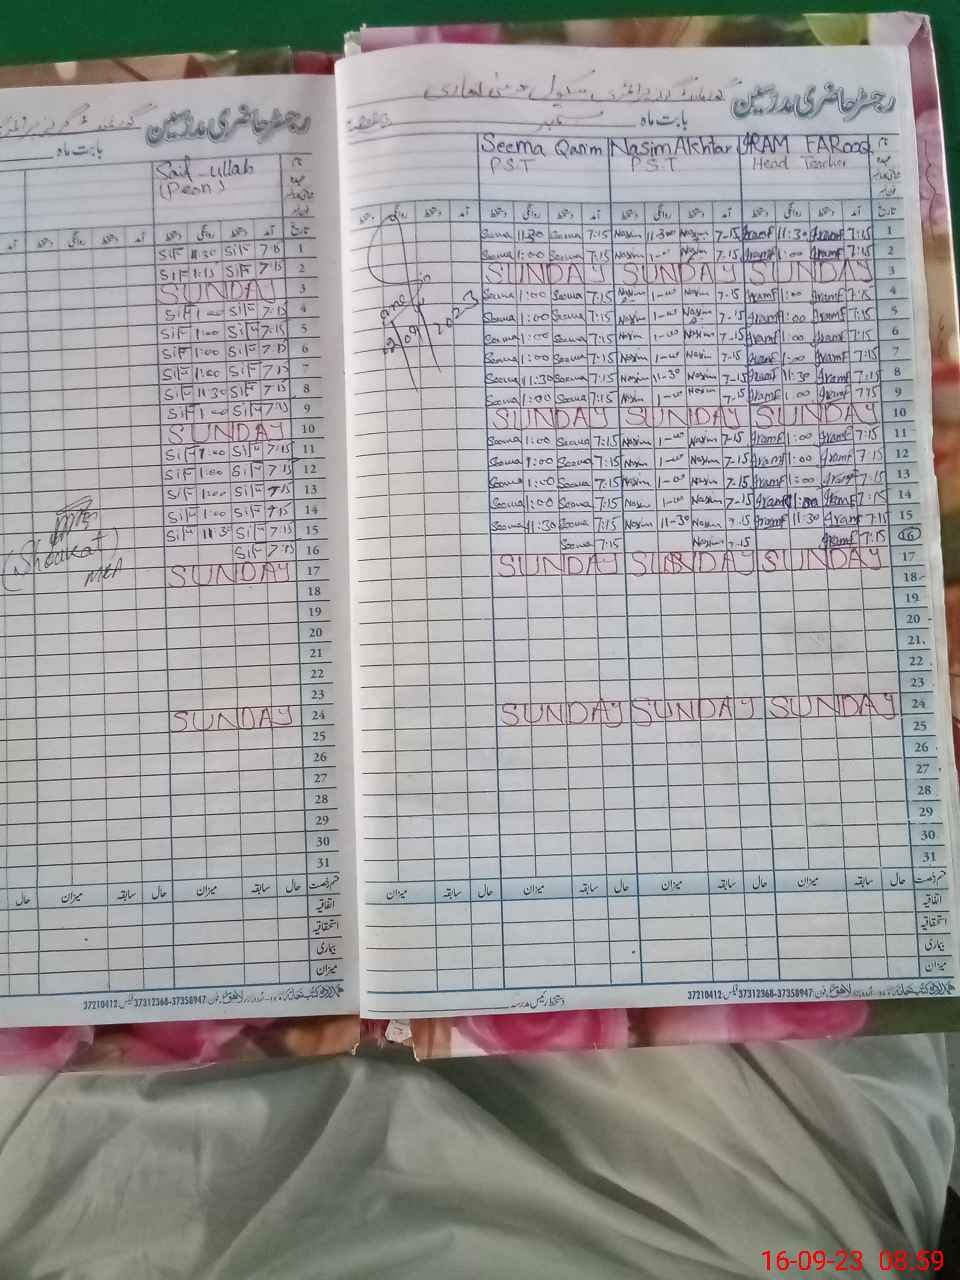 رجسٹر حاضری مدرسین
بابت ماہ
Said-ullah
(Peon)
تاریخ
آمد دستخط روانگی دستخط آمد دستخط روانگی دستخط آمد
Sif 11:30 Sif 7:15 1
Sif 1:15 Sif 7:15 2
SUNDAY 3
Sif 1:00 Sif 7:15 4
Sif 1:00 Sif 7:15 5
Sif 1:00 Sif 7:15 6
Sif 1:00 Sif 7:15 7
Sif 11:30 Sif 7:15 8
Sif 1:00 Sif 7:15 9
SUNDAY 10
Sif 1:00 Sif 7:15 11
Sif 1:00 Sif 7:15 12
Sif 1:00 Sif 7:15 13
Sif 1:00 Sif 7:15 14
Sif 11:30 Sif 7:15 15
Sif 7:15 16
SUNDAY 17
18
19
20
21
22
23
SUNDAY 24
25
26
27
28
29
30
31
(Shoukat)
MEA
حال سابقہ میزان حال سابقہ میزان حال
اتفاقیہ
استحقاقیہ
بیماری
میزان
37210412 37312368-37358947
رجسٹر حاضری مدرسین
بابت ماہ ستمبر
Seema Qasim Nasim Akhtar IRAM FAROOQ
P.S.T P.S.T Head Teacher
تاریخ
آمد دستخط روانگی دستخط آمد دستخط روانگی دستخط آمد دستخط روانگی دستخط آمد دستخط
Seema 11:30 Seema 7:15 Nasim 11-30 Nasim 7-15 Iramf 11:30 Iramf 7:15 1
Seema 1:00 Seema 7:15 Nasim 1-00 Nasim 7-15 Iramf 1:00 Iramf 7:15 2
SUNDAY SUNDAY SUNDAY 3
Seema 1:00 Seema 7:15 Nasim 1-00 Nasim 7-15 Iramf 1:00 Iramf 7:15 4
Seema 1:00 Seema 7:15 Nasim 1-00 Nasim 7-15 Iramf 1:00 Iramf 7:15 5
Seema 1:00 Seema 7:15 Nasim 1-00 Nasim 7-15 Iramf 1:00 Iramf 7:15 6
Seema 1:00 Seema 7:15 Nasim 1-00 Nasim 7-15 Iramf 1:00 Iramf 7:15 7
Seema 11:30 Seema 7:15 Nasim 11-30 Nasim 7-15 Iramf 11:30 Iramf 7:15 8
Seema 1:00 Seema 7:15 Nasim 1-00 Nasim 7-15 Iramf 1:00 Iramf 7:15 9
SUNDAY SUNDAY SUNDAY 10
Seema 1:00 Seema 7:15 Nasim 1-00 Nasim 7-15 Iramf 1:00 Iramf 7:15 11
Seema 1:00 Seema 7:15 Nasim 1-00 Nasim 7-15 Iramf 1:00 Iramf 7:15 12
Seema 1:00 Seema 7:15 Nasim 1-00 Nasim 7-15 Iramf 1:00 Iramf 7:15 13
Seema 1:00 Seema 7:15 Nasim 1-00 Nasim 7-15 Iramf 1:00 Iramf 7:15 14
Seema 11:30 Seema 7:15 Nasim 11-30 Nasim 7-15 Iramf 11:30 Iramf 7:15 15
Seema 7:15 Nasim 7-15 Iramf 7:15 16
SUNDAY SUNDAY SUNDAY 17
18
19
20
21
22
23
SUNDAY SUNDAY SUNDAY 24
25
26
27
28
29
30
31
حال سابقہ میزان حال سابقہ میزان حال سابقہ میزان حال سابقہ میزان
اتفاقیہ
استحقاقیہ
بیماری
میزان
دستخط رئیس مدرسہ
37210412 37312368-37358947
16-09-23 08:59